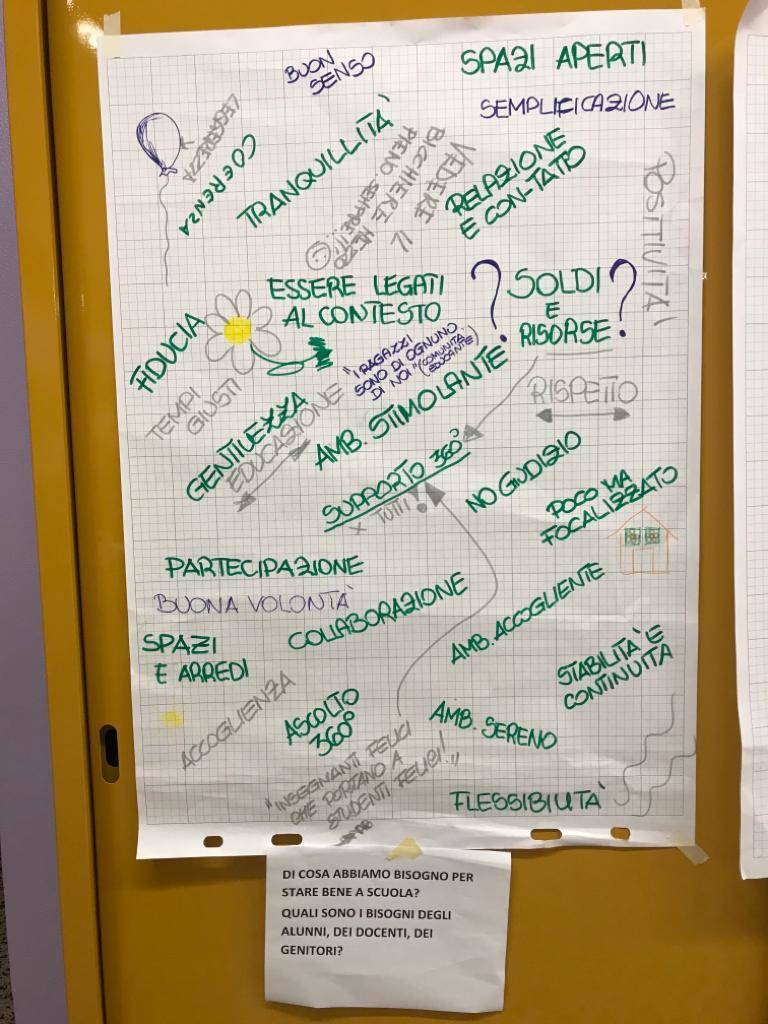 BUON
SENSO
SPAZI APERTI
SEMPLIFICAZIONE
LEGGEREZZA
COERENZA
TRANQUILLITÀ
VEDERE IL
BICCHIERE MEZZO
PIENO SEMPRE!!!
RELAZIONE
E CON-TATO
POSITIVITÀ
ESSERE LEGATI
AL CONTESTO
? SOLDI ?
E
RISORSE
FIDUCIA
TEMPI
GIUSTI
"I RAGAZZI
SONO DI OGNUNO
DI NOI" (COMUNITÀ
EDUCANTE)
GENTILEZZA
EDUCAZIONE
AMB. STIMOLANTE
RISPETTO
SUPPORTO 360°
X TUTTI!
NO GIUDIZIO
POCO MA
FOCALIZZATO
PARTECIPAZIONE
BUONA VOLONTÀ
COLLABORAZIONE
AMB. ACCOGLIENTE
SPAZI
E ARREDI
STABILITÀ E
CONTINUITÀ
ACCOGLIENZA
ASCOLTO
360°
AMB. SERENO
"INSEGNANTI FELICI
CHE PORTANO A
STUDENTI FELICI!"
FLESSIBILITÀ
DI COSA ABBIAMO BISOGNO PER
STARE BENE A SCUOLA?
QUALI SONO I BISOGNI DEGLI
ALUNNI, DEI DOCENTI, DEI
GENITORI?